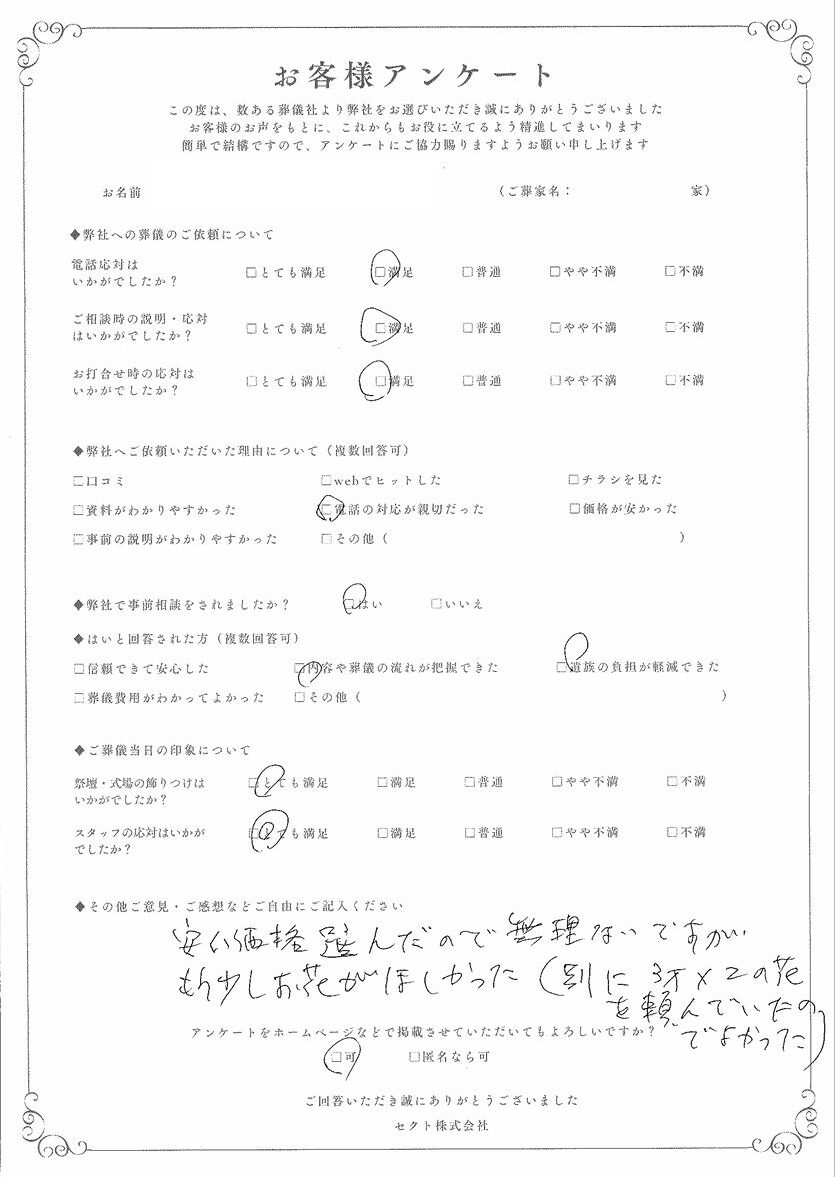 お客様アンケート
この度は、数ある葬儀社より弊社をお選びいただき誠にありがとうございました
お客様のお声をもとに、これからもお役に立てるよう精進してまいります
簡単で結構ですので、アンケートにご協力賜りますようお願い申し上げます
お名前 （ご葬家名： 家）
◆弊社への葬儀のご依頼について
電話応対は
いかがでしたか？ □とても満足 □満足 □普通 □やや不満 □不満
ご相談時の説明・応対
はいかがでしたか？ □とても満足 □満足 □普通 □やや不満 □不満
お打合せ時の応対は
いかがでしたか？ □とても満足 □満足 □普通 □やや不満 □不満
◆弊社へご依頼いただいた理由について（複数回答可）
□口コミ □webでヒットした □チラシを見た
□資料がわかりやすかった □電話の対応が親切だった □価格が安かった
□事前の説明がわかりやすかった □その他（ ）
◆弊社で事前相談をされましたか？ □はい □いいえ
◆はいと回答された方（複数回答可）
□信頼できて安心した □内容や葬儀の流れが把握できた □遺族の負担が軽減できた
□葬儀費用がわかってよかった □その他（ ）
◆ご葬儀当日の印象について
祭壇・式場の飾りつけは
いかがでしたか？ □とても満足 □満足 □普通 □やや不満 □不満
スタッフの応対はいかが
でしたか？ □とても満足 □満足 □普通 □やや不満 □不満
◆その他ご意見・ご感想などご自由にご記入ください
安い価格選んだので無理ないですが、
もう少しお花がほしかった（別に 3万×2の花
を頼んでいたの
でよかった）
アンケートをホームページなどで掲載させていただいてもよろしいですか？
□可 □匿名なら可
ご回答いただき誠にありがとうございました
セクト株式会社